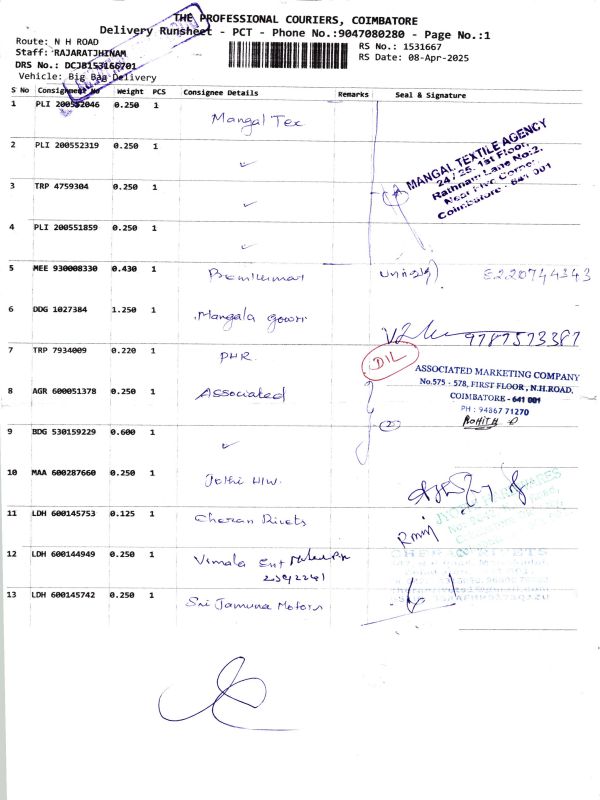 THE PROFESSIONAL COURIERS, COIMBATORE
Delivery Runsheet - PCT - Phone No.:9047080280 - Page No.:1
Route: N H ROAD
Staff: RAJARATJHINAM
DRS No.: DCJB153166701
Vehicle: Big Bag Delivery
RS No.: 1531667
RS Date: 08-Apr-2025
S No Consignment No Weight PCS Consignee Details Remarks Seal & Signature
1 PLI 200552046 0.250 1 Mangal Tex
2 PLI 200552319 0.250 1 ✓
MANGAL TEXTILE AGENCY
24 / 25, 1st Floor,
Rathnam Lane No:2,
Near Five Corner,
Coimbatore - 641 001
3 TRP 4759304 0.250 1 ✓
4 PLI 200551859 0.250 1 ✓
5 MEE 930008330 0.430 1 Premkumar E220744343
6 DDG 1027384 1.250 1 Mangala Gowri 9787573387
7 TRP 7934009 0.220 1 PHR. DIL
ASSOCIATED MARKETING COMPANY
No.575 - 578, FIRST FLOOR, N.H.ROAD,
COIMBATORE - 641 001
PH : 94867 71270
ROHITH
8 AGR 600051378 0.250 1 Associated
9 BDG 530159229 0.600 1 ✓
10 MAA 600287660 0.250 1 Jothi H/W.
11 LDH 600145753 0.125 1 Cheran Rivets
CHERAN RIVETS
12 LDH 600144949 0.250 1 Vimala Ent
13 LDH 600145742 0.250 1 Sri Jamuna Motors